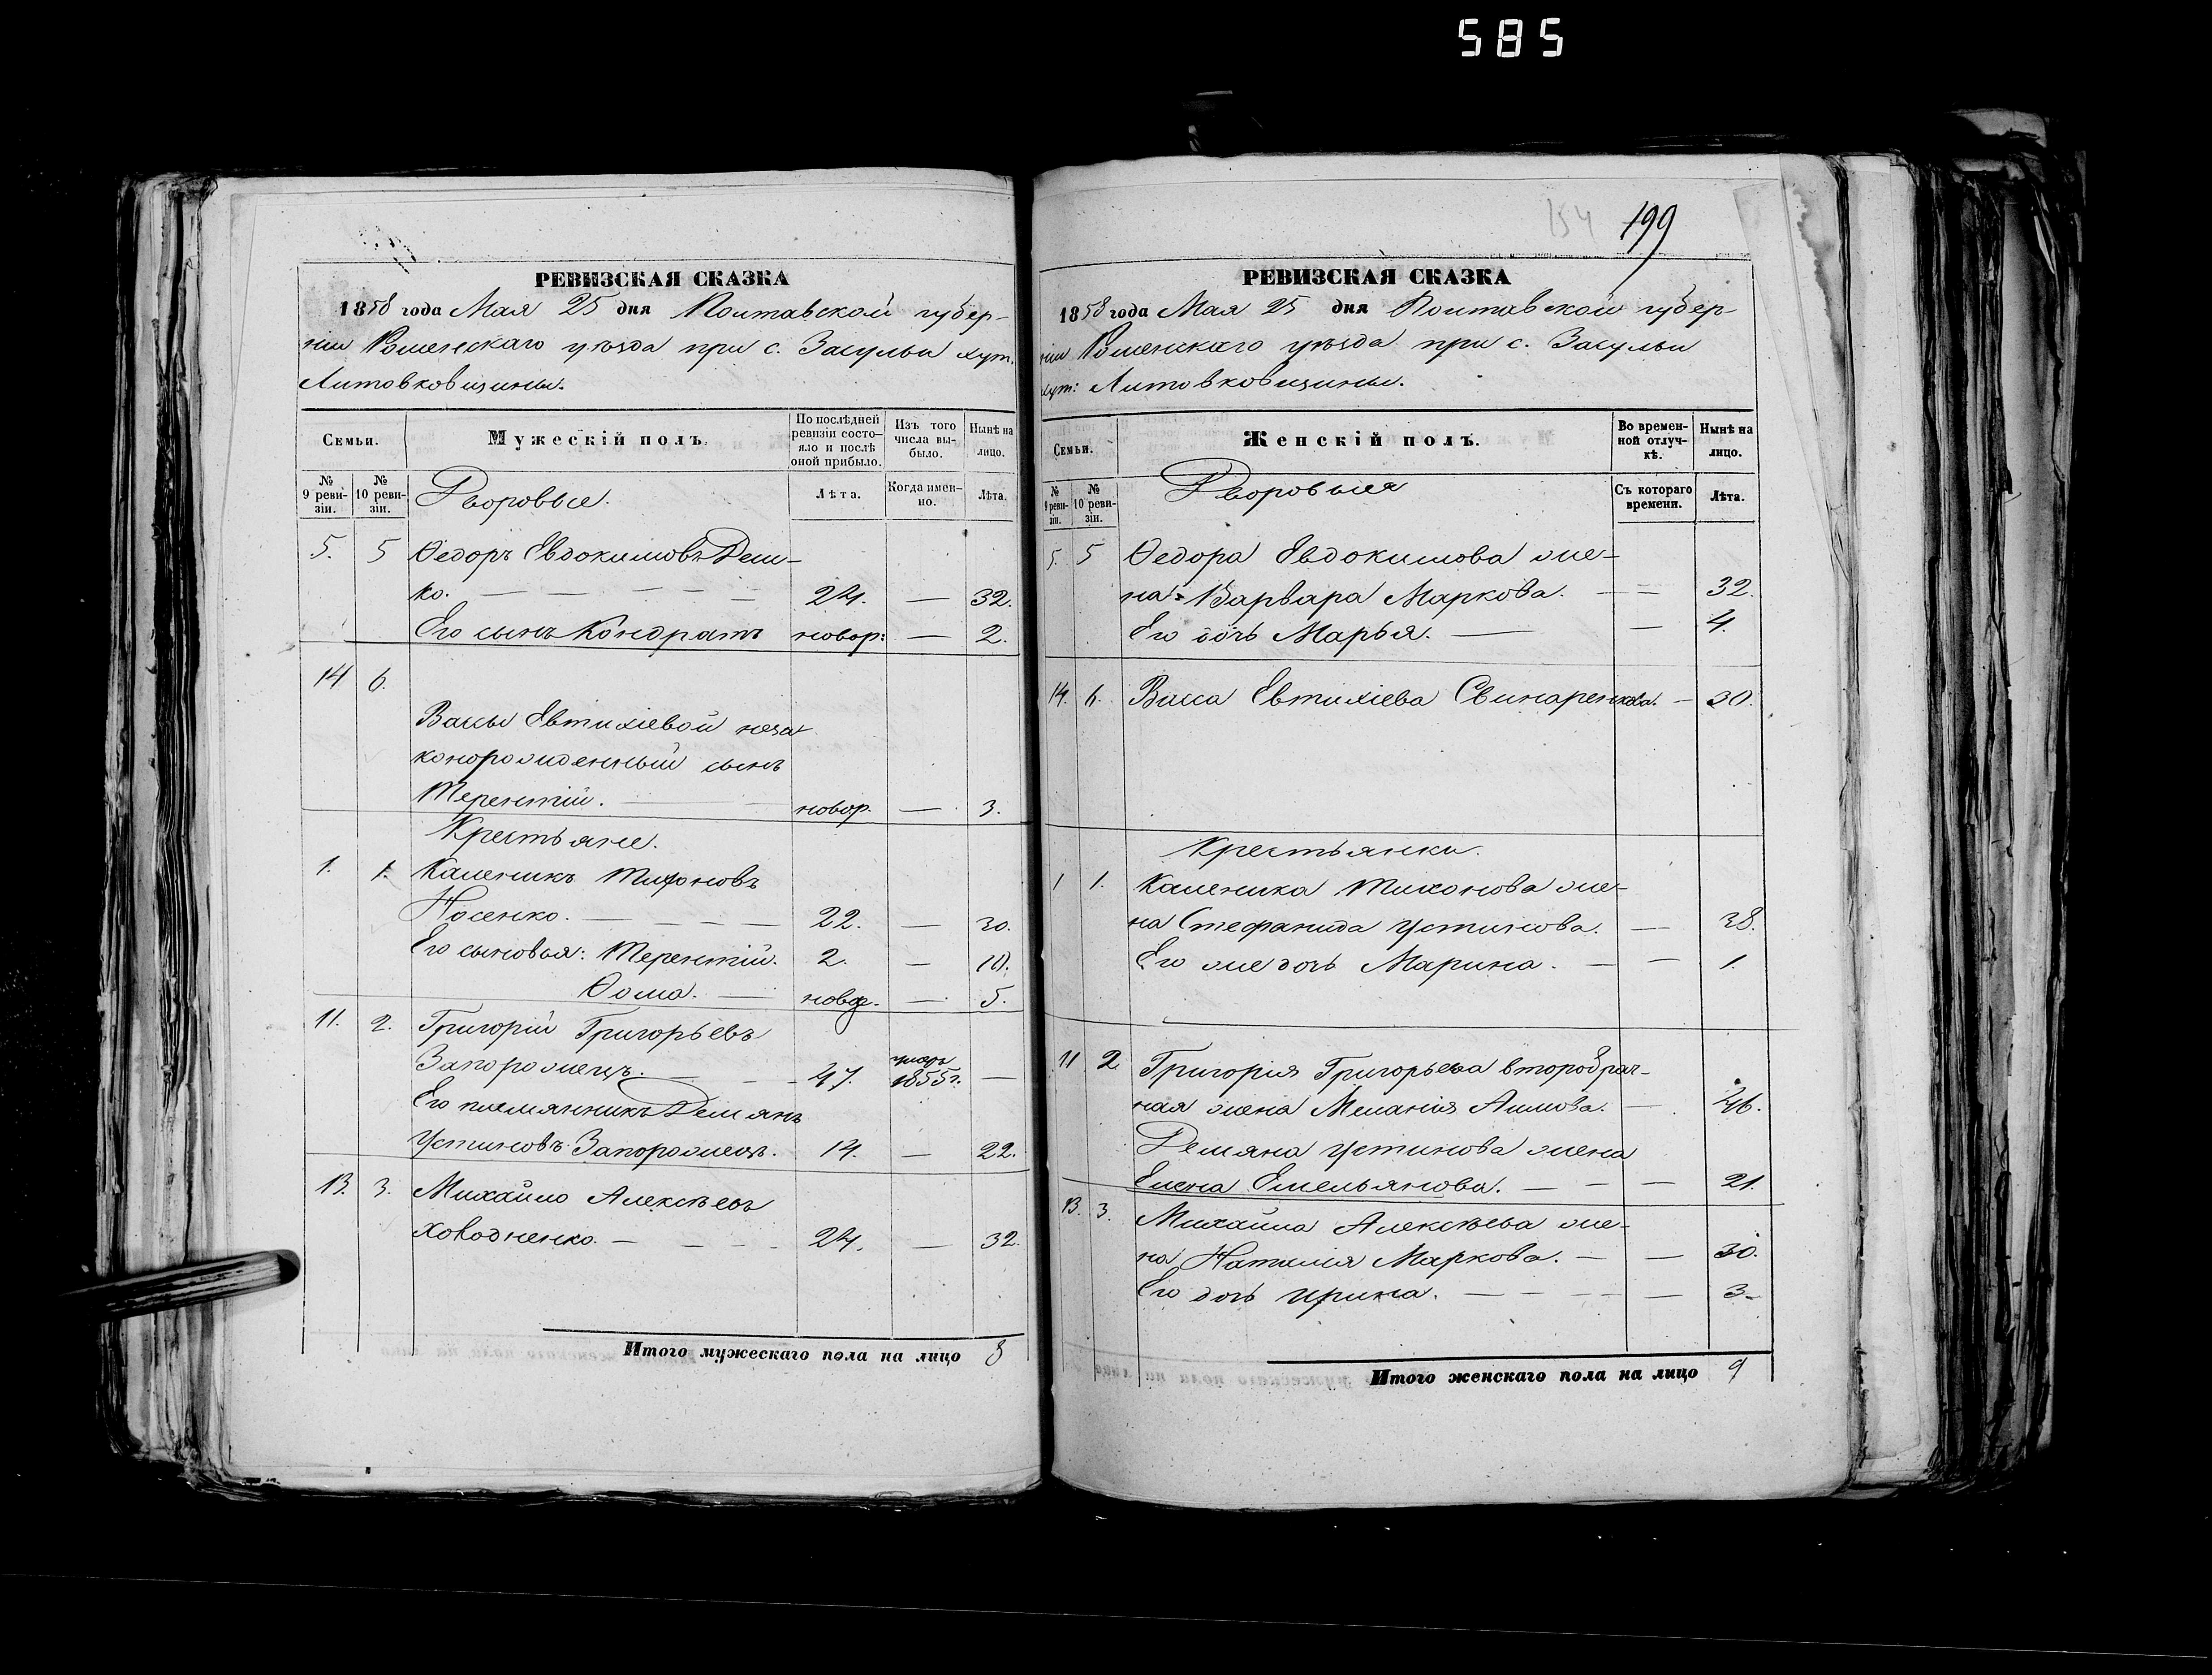 585
РЕВИЗСКАЯ СКАЗКА
1858 года Мая 25 дня Полтавской губер-
нии Роменскаго уѣзда при с. Засульи хут.
Литовковщины.
Семьи.
Мужескій полъ.
По послѣдней ревизіи состо-яло и послѣ оной прибыло.
Изъ того числа вы-было.
Нынѣ на лицо.
№ 9 реви-зіи.
№ 10 реви-зіи.
Дворовые.
Лѣта.
Когда имен-но.
Лѣта.
5. 5 Ѳедоръ Евдокимовъ Деш-
ко. — — — — — 24. — 32.
Его сынъ Кондратъ новор: — 2.
14 6.
Вассы Евтихіевой неза-
конорожденный сынъ
Терентій. — новор. — 3.
Крестьяне.
1. 1. Каленикъ Тихоновъ
Носенко. — — — — 22. — 30.
Его сыновья: Терентій. 2. — 10.
Ѳома. — новор. — 5.
11. 2. Григорій Григорьевъ
Запорожецъ. — — 47. умеръ 1855 г. —
Его племянникъ Демянъ
Устиновъ Запорожецъ. 14. — 22.
13. 3. Михайло Алексѣевъ
Холодненко. — — — — 24. — 32.
Итого мужескаго пола на лицо 8
154 199
РЕВИЗСКАЯ СКАЗКА
1858 года Мая 25 дня Полтавской губер-
ніи Роменскаго уѣзда при с. Засульи
хут: Литовковщины.
Семьи.
Женскій полъ.
Во времен-ной отлуч-кѣ.
Нынѣ на лицо.
№ 9 реви-зіи.
№ 10 реви-зіи.
Дворовыя
Съ котораго времени.
Лѣта.
5. 5 Ѳедора Евдокимова же-
на Варвара Маркова. — — 32.
Его дочь Марья. — — 4.
14. 6. Васса Евтихіева Свинаренкова. — 30.
Крестьянки.
1 1. Каленика Тихонова же-
на Стефанида Устинова. — 38.
Его же дочь Марина. — — 1.
11 2 Григорія Григорьева второбрач-
ная жена Меланія Акимова. — 46.
Демяна Устинова жена
Елена Емельянова. — — — 21.
13. 3. Михайла Алексѣева же-
на Наталія Маркова. — — 30.
Его дочь Ирина. — — — — — 3
Итого женскаго пола на лицо 9